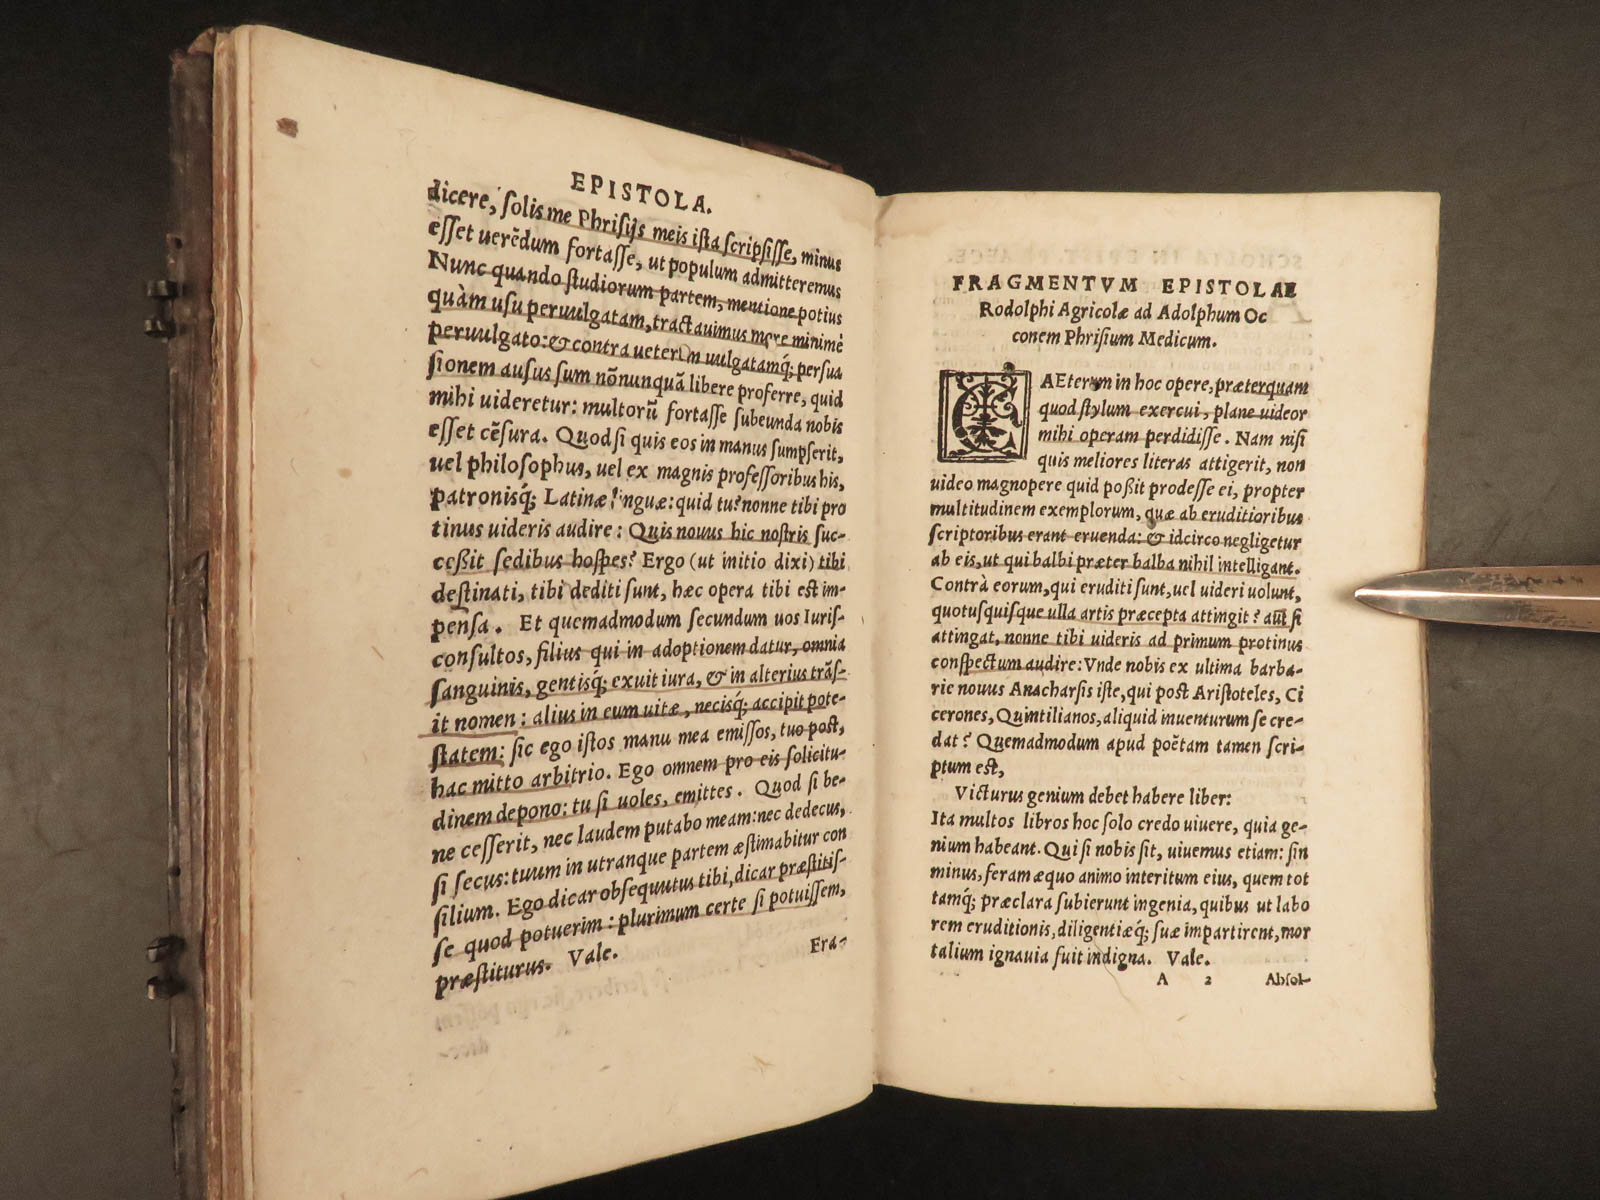 EPISTOLA.
dicere, ſolis me Phriſijs meis iſta ſcripſiſſe, minus
eſſet uerẽdum fortaſſe, ut populum admitteremus
Nunc quando ſtudiorum partem, mentione potius
quàm uſu peruulgatam, tractauimus more minimè
peruulgato: & contra ueterem uulgatamq́; perſua
ſionem auſus ſum nõnunquã libere proferre, quid
mihi uideretur: multorũ fortaſſe ſubeunda nobis
eſſet cẽſura. Quod ſi quis eos in manus ſumpſerit,
uel philoſophus, uel ex magnis profeſſoribus his,
patronisq́; Latinæ linguæ: quid tu? nonne tibi pro
tinus uideris audire: Quis nouus hic noſtris ſuc-
ceßit ſedibus hoſpes? Ergo (ut initio dixi) tibi
deſtinati, tibi dediti ſunt, hæc opera tibi eſt im-
penſa. Et quemadmodum ſecundum uos Iuriſ-
conſultos, filius qui in adoptionem datur, omnia
ſanguinis, gentisq́; exuit iura, & in alterius trãſ-
it nomen: alius in eum uitæ, necisq́; accipit pote-
ſtatem: ſic ego iſtos manu mea emiſſos, tuo poſt,
hac mitto arbitrio. Ego omnem pro eis ſolicitu-
dinem depono: tu ſi uoles, emittes. Quod ſi be-
ne ceſſerit, nec laudem putabo meam: nec dedecus,
ſi ſecus: tuum in utranque partem æſtimabitur con
ſilium. Ego dicar obſequutus tibi, dicar præſtitiſ-
ſe quod potuerim: plurimum certe ſi potuiſſem,
præſtiturus. Vale.
Fra-
FRAGMENTVM EPISTOLAE
Rodolphi Agricolæ ad Adolphum Oc
conem Phriſium Medicum.
CAEterum in hoc opere, præterquam
quod ſtylum exercui, plane uideor
mihi operam perdidiſſe. Nam niſi
quis meliores literas attigerit, non
uideo magnopere quid poßit prodeſſe ei, propter
multitudinem exemplorum, quæ ab eruditioribus
ſcriptoribus erant eruenda: & idcirco negligetur
ab eis, ut qui balbi præter balba nihil intelligant.
Contrà eorum, qui eruditi ſunt, uel uideri uolunt,
quotuſquiſque ulla artis præcepta attingit? aut ſi
attingat, nonne tibi uideris ad primum protinus
conſpectum audire: Vnde nobis ex ultima barba-
rie nouus Anacharſis iſte, qui poſt Ariſtoteles, Ci
cerones, Quintilianos, aliquid inuenturum ſe cre-
dat? Quemadmodum apud poëtam tamen ſcri-
ptum eſt,
Victurus genium debet habere liber:
Ita multos libros hoc ſolo credo uiuere, quia ge-
nium habeant. Qui ſi nobis ſit, uiuemus etiam: ſin
minus, feram æquo animo interitum eius, quem tot
tamq́; præclara ſubierunt ingenia, quibus ut labo
rem eruditionis, diligentiæq́; ſuæ impartirent, mor
talium ignauia fuit indigna. Vale.
A 2 Abſol-